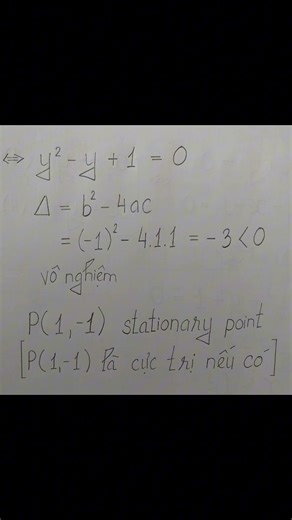 ⇔ y² - y + 1 = 0
Δ = b² - 4ac
= (-1)² - 4.1.1 = -3 < 0
vô nghiệm
P(1,-1) stationary point
[P(1,-1) là cực trị nếu có]